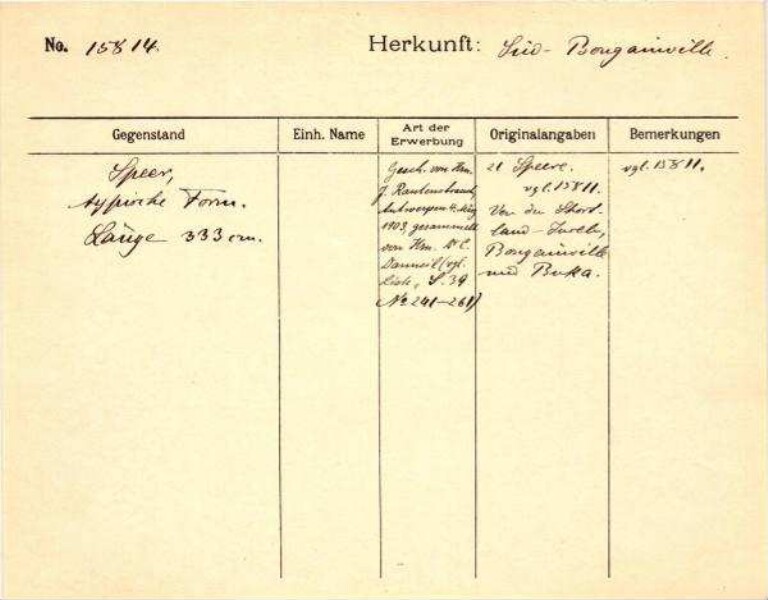 No. 15814. Herkunft: Süd-Bougainville.
Gegenstand
Einh. Name
Art der Erwerbung
Originalangaben
Bemerkungen
Speer,
typische Form.
Länge 333 cm.
Gesch. von Hrn.
J. Rautenstrauch,
Antwerpen 4. Aug.
1903, gesammelt
von Hrn. Dr C.
Danneil (vgl.
Liste, S. 39
No 241-261)
21 Speere.
vgl. 15811.
Von den Short-
land-Inseln,
Bougainville
und Buka.
vgl. 15811.